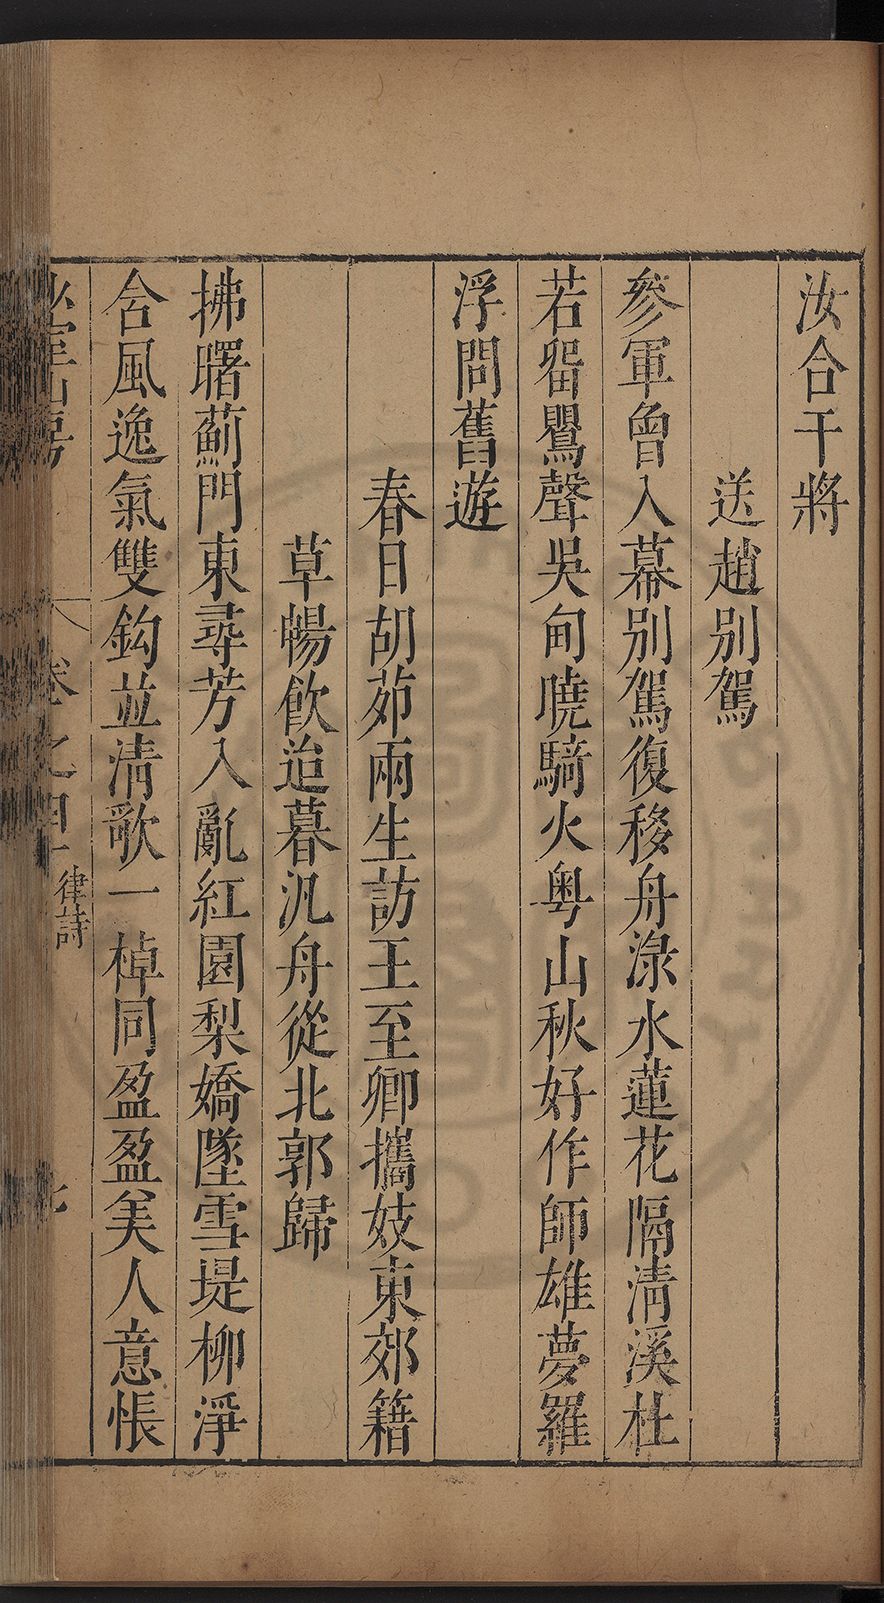 汝合干將
送趙別駕
參軍曾入幕別駕復移舟淥水蓮花隔清溪杜
若留鸎聲吳甸曉騎火粤山秋好作師雄夢羅
浮問舊遊
春日胡茆兩生訪王至卿攜妓東郊籍
草暢飲迨暮汎舟從北郭歸
拂曙薊門東尋芳入亂紅園梨嬌墜雪堤柳淨
含風逸氣雙鈎並清歌一棹同盈盈美人意悵
卷之四 律詩